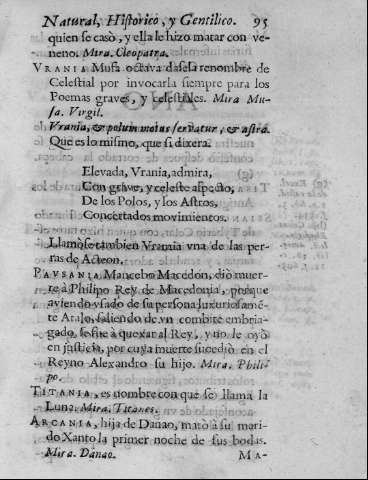 Natural, Historico, y Gentilico. 95
quien se casò, y ella le hizo matar con ve-
neno. Mira. Cleopatra.
VRANIA Musa octava dasela renombre de
Celestial por invocarla siempre para los
Poemas graves, y celestiales. Mira Mu-
sa. Virgil.
Vrania, & polum motus servatur, & astra.
Que es lo mismo, que si dixera.
Elevada, Vrania, admira,
Con grave, y celeste aspecto,
De los Polos, y los Astros,
Concertados movimientos.
Llamòse tambien Vrania vna de las per-
ras de Acteon.
PAVSANIA Mancebo Macedon, diò muer-
te à Philipo Rey de Macedonia, porque
aviendo vsado de su persona luxuriosamẽ-
te Atalo, saliendo de vn combite embria-
gado, se fue à quexar al Rey, y no le oyò
en justicia, por cuya muerte sucediò en el
Reyno Alexandro su hijo. Mira. Phili-
po.
TITANIA, es nombre con que se llama la
Luna. Mira. Titanes.
ARCANIA, hija de Danao, matò à su mari-
do Xanto la primer noche de sus bodas.
Mira. Danao. MA-